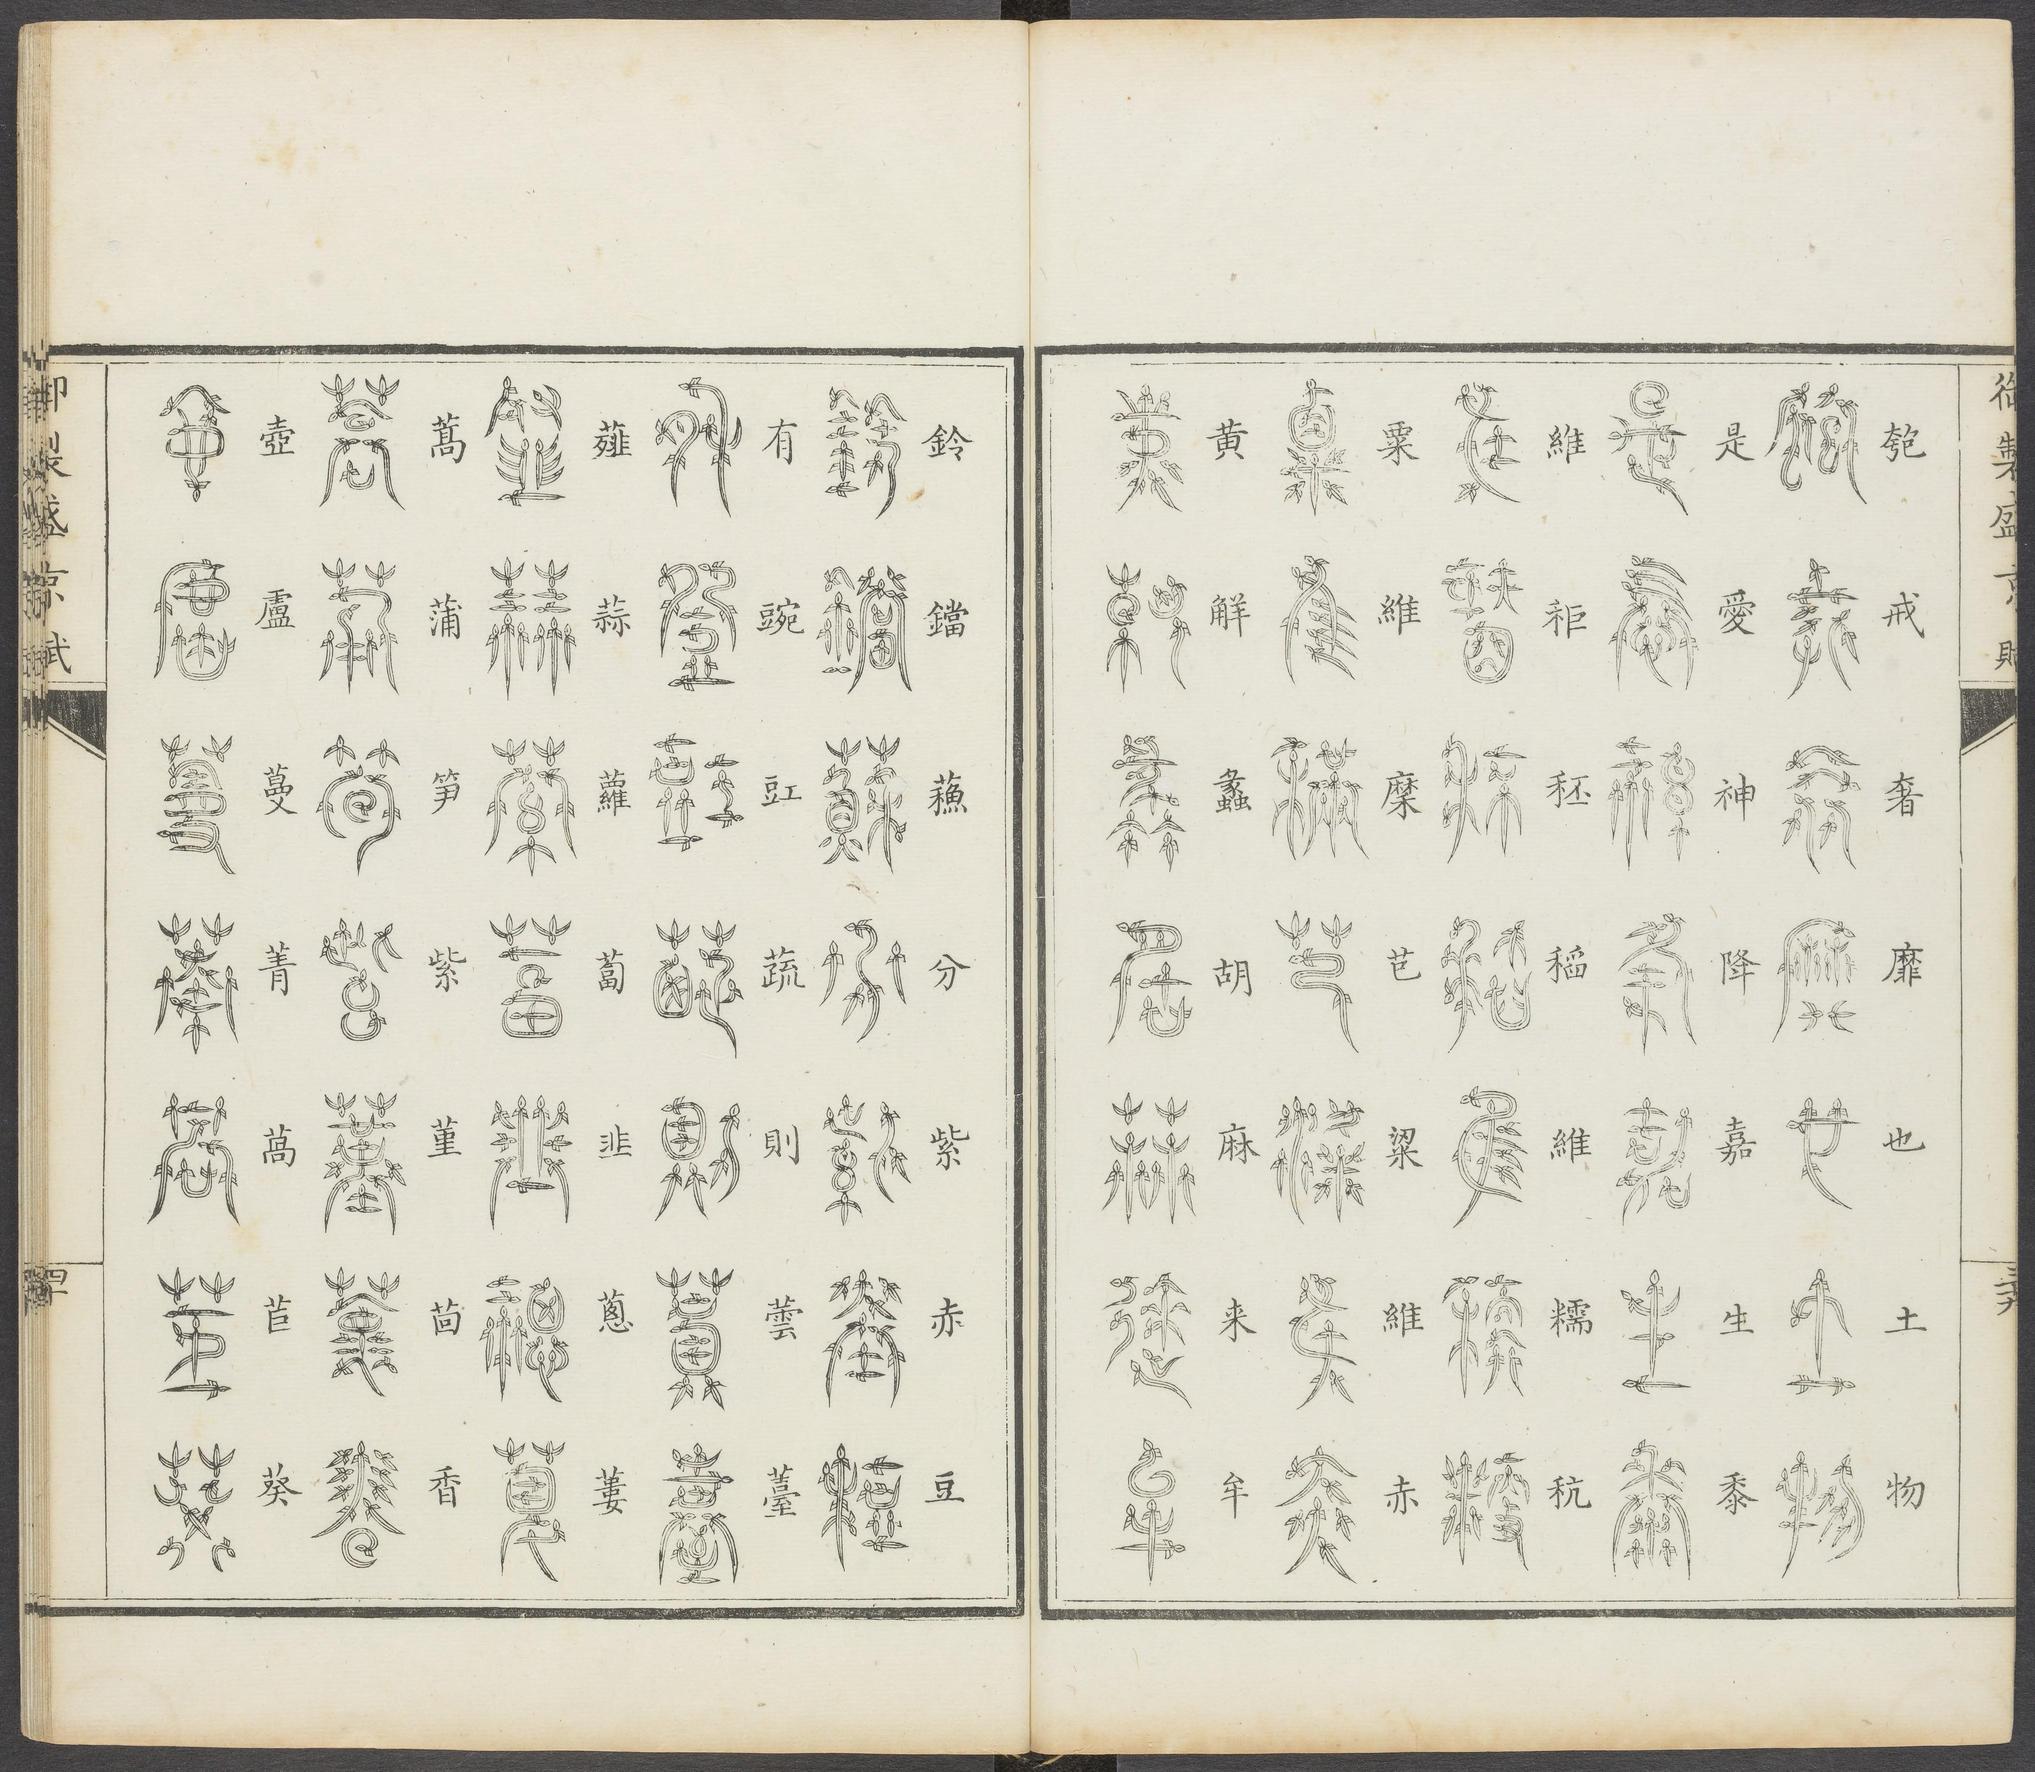 御製盛京賦
匏戒奢靡也土物
是愛神降嘉生黍
維秬秠稻維糯秔
粟維穈芑粱維赤
黃鮮蠡胡麻来牟
三十九
鈴鐺蘓分紫赤豆
有豌豇蔬則蕓薹
薤蒜蘿蔔韭蔥蔞
蒿蒲笋紫堇茴香
壺盧蔓菁萵苣葵
御製盛京賦
四十